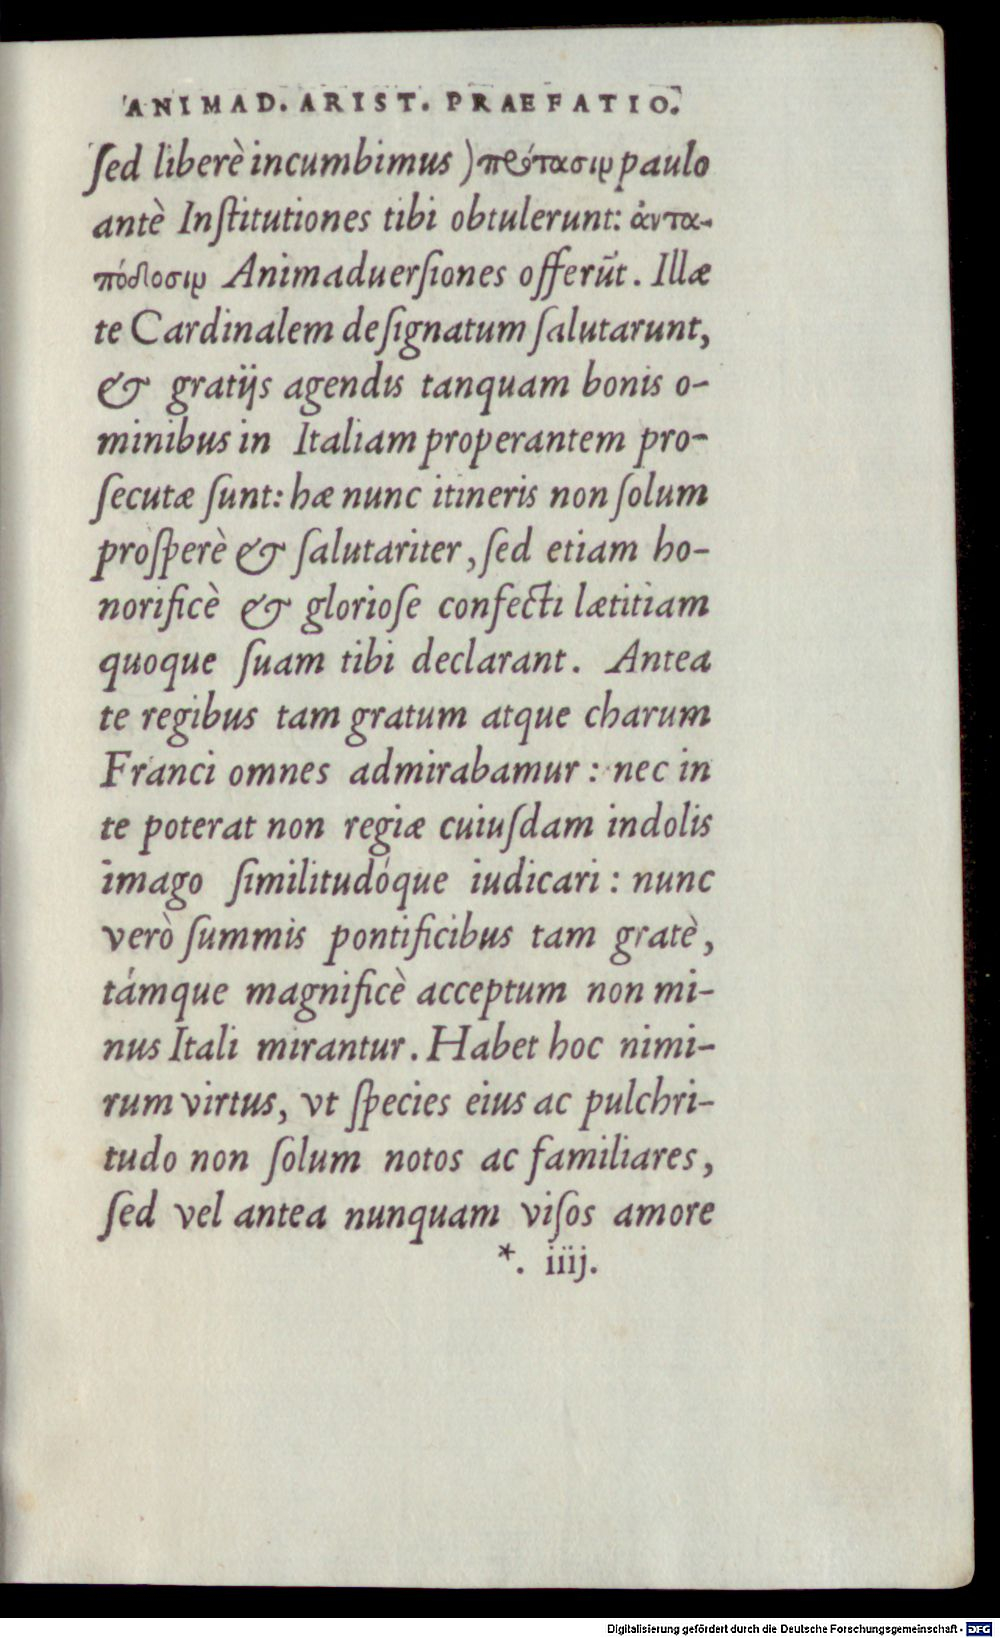 ANIMAD. ARIST. PRAEFATIO.
ſed liberè incumbimus ) πρότασιν paulo
antè Inſtitutiones tibi obtulerunt: ἀντα-
πόδοσιν Animaduerſiones offerūt. Illæ
te Cardinalem deſignatum ſalutarunt,
& gratijs agendis tanquam bonis o-
minibus in Italiam properantem pro-
ſecutæ ſunt: hæ nunc itineris non ſolum
proſperè & ſalutariter, ſed etiam ho-
norificè & glorioſe confecti lætitiam
quoque ſuam tibi declarant. Antea
te regibus tam gratum atque charum
Franci omnes admirabamur: nec in
te poterat non regiæ cuiuſdam indolis
imago ſimilitudóque iudicari: nunc
verò ſummis pontificibus tam gratè,
támque magnificè acceptum non mi-
nus Itali mirantur. Habet hoc nimi-
rum virtus, vt ſpecies eius ac pulchri-
tudo non ſolum notos ac familiares,
ſed vel antea nunquam viſos amore
*. iiij.
Digitalisierung gefördert durch die Deutsche Forschungsgemeinschaft - DFG